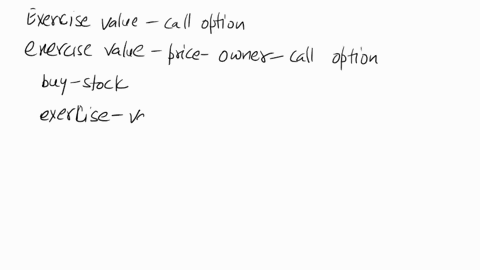 Exercise value - call option
exercise value - price - owner - call option
buy - stock
exercise - va